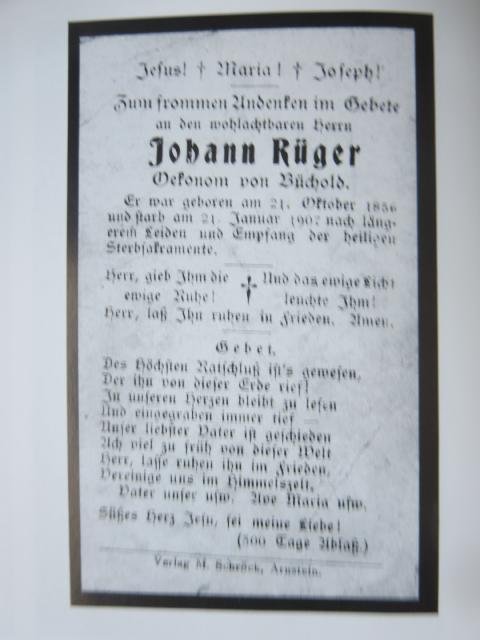 Jesus! † Maria! † Joseph!
Zum frommen Andenken im Gebete
an den wohlachtbaren Herrn
Johann Rüger
Oekonom von Büchold.
Er war geboren am 21. Oktober 1856
und starb am 21. Januar 1907 nach läng-
erem Leiden und Empfang der heiligen
Sterbsakramente.
Herr, gieb Ihm die † Und das ewige Licht
ewige Ruhe! leuchte Ihm!
Herr, laß Ihn ruhen in Frieden. Amen.
Gebet.
Des Höchsten Ratschluß ist's gewesen,
Der ihn von dieser Erde rief!
In unseren Herzen bleibt zu lesen
Und eingegraben immer tief
Unser liebster Vater ist geschieden
Ach viel zu früh von dieser Welt
Herr, lasse ruhen ihn im Frieden,
Vereinige uns im Himmelszelt,
Vater unser usw. Ave Maria usw.
Süßes Herz Jesu, sei meine Liebe!
(300 Tage Ablaß.)
Verlag M. Schröck, Arnstein.